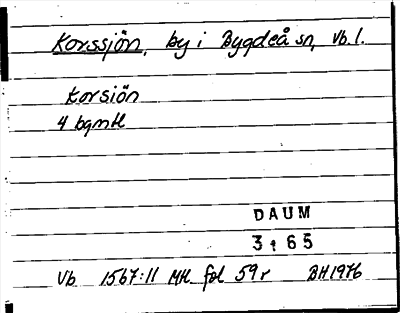 Korssjön, by i Bygdeå sn, Vb. l.
Korsiön
4 bqmtl
DAUM
3 1 65
Vb 1567:11 MH fol 59r BH 1976